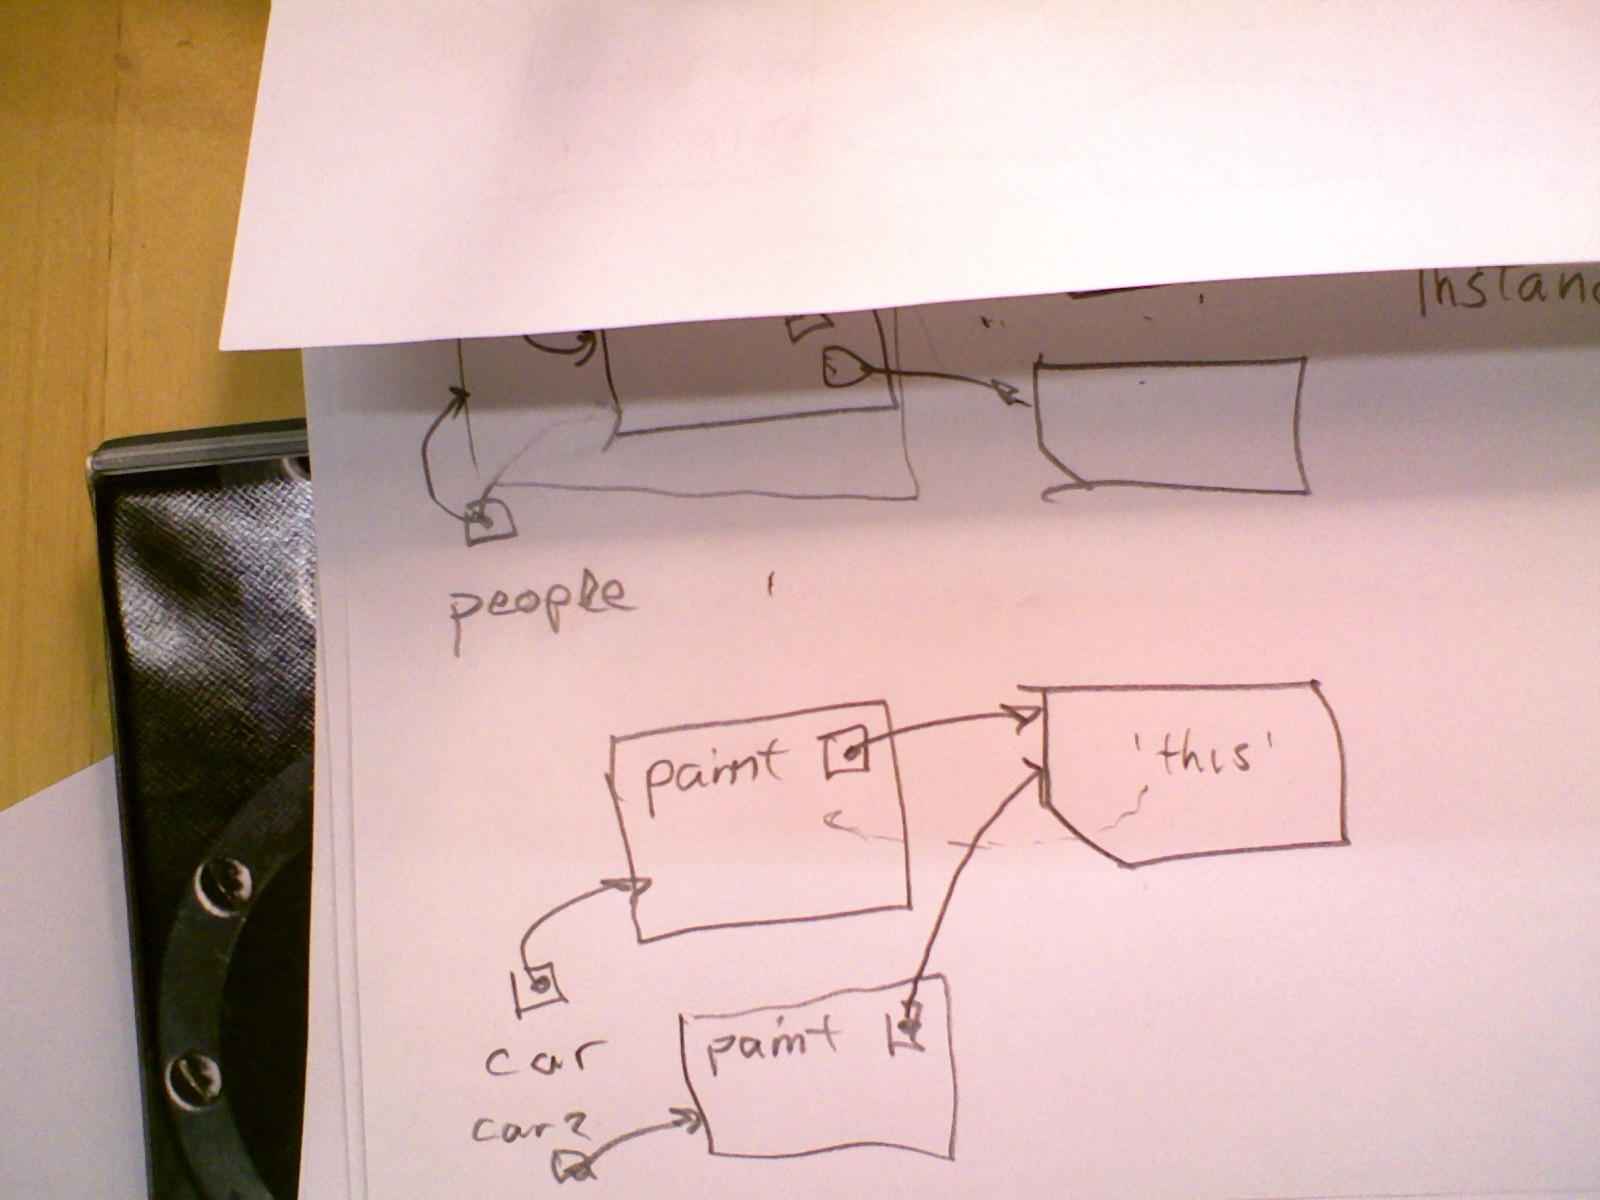 Instanc
people
paint
'this'
car
paint
car2